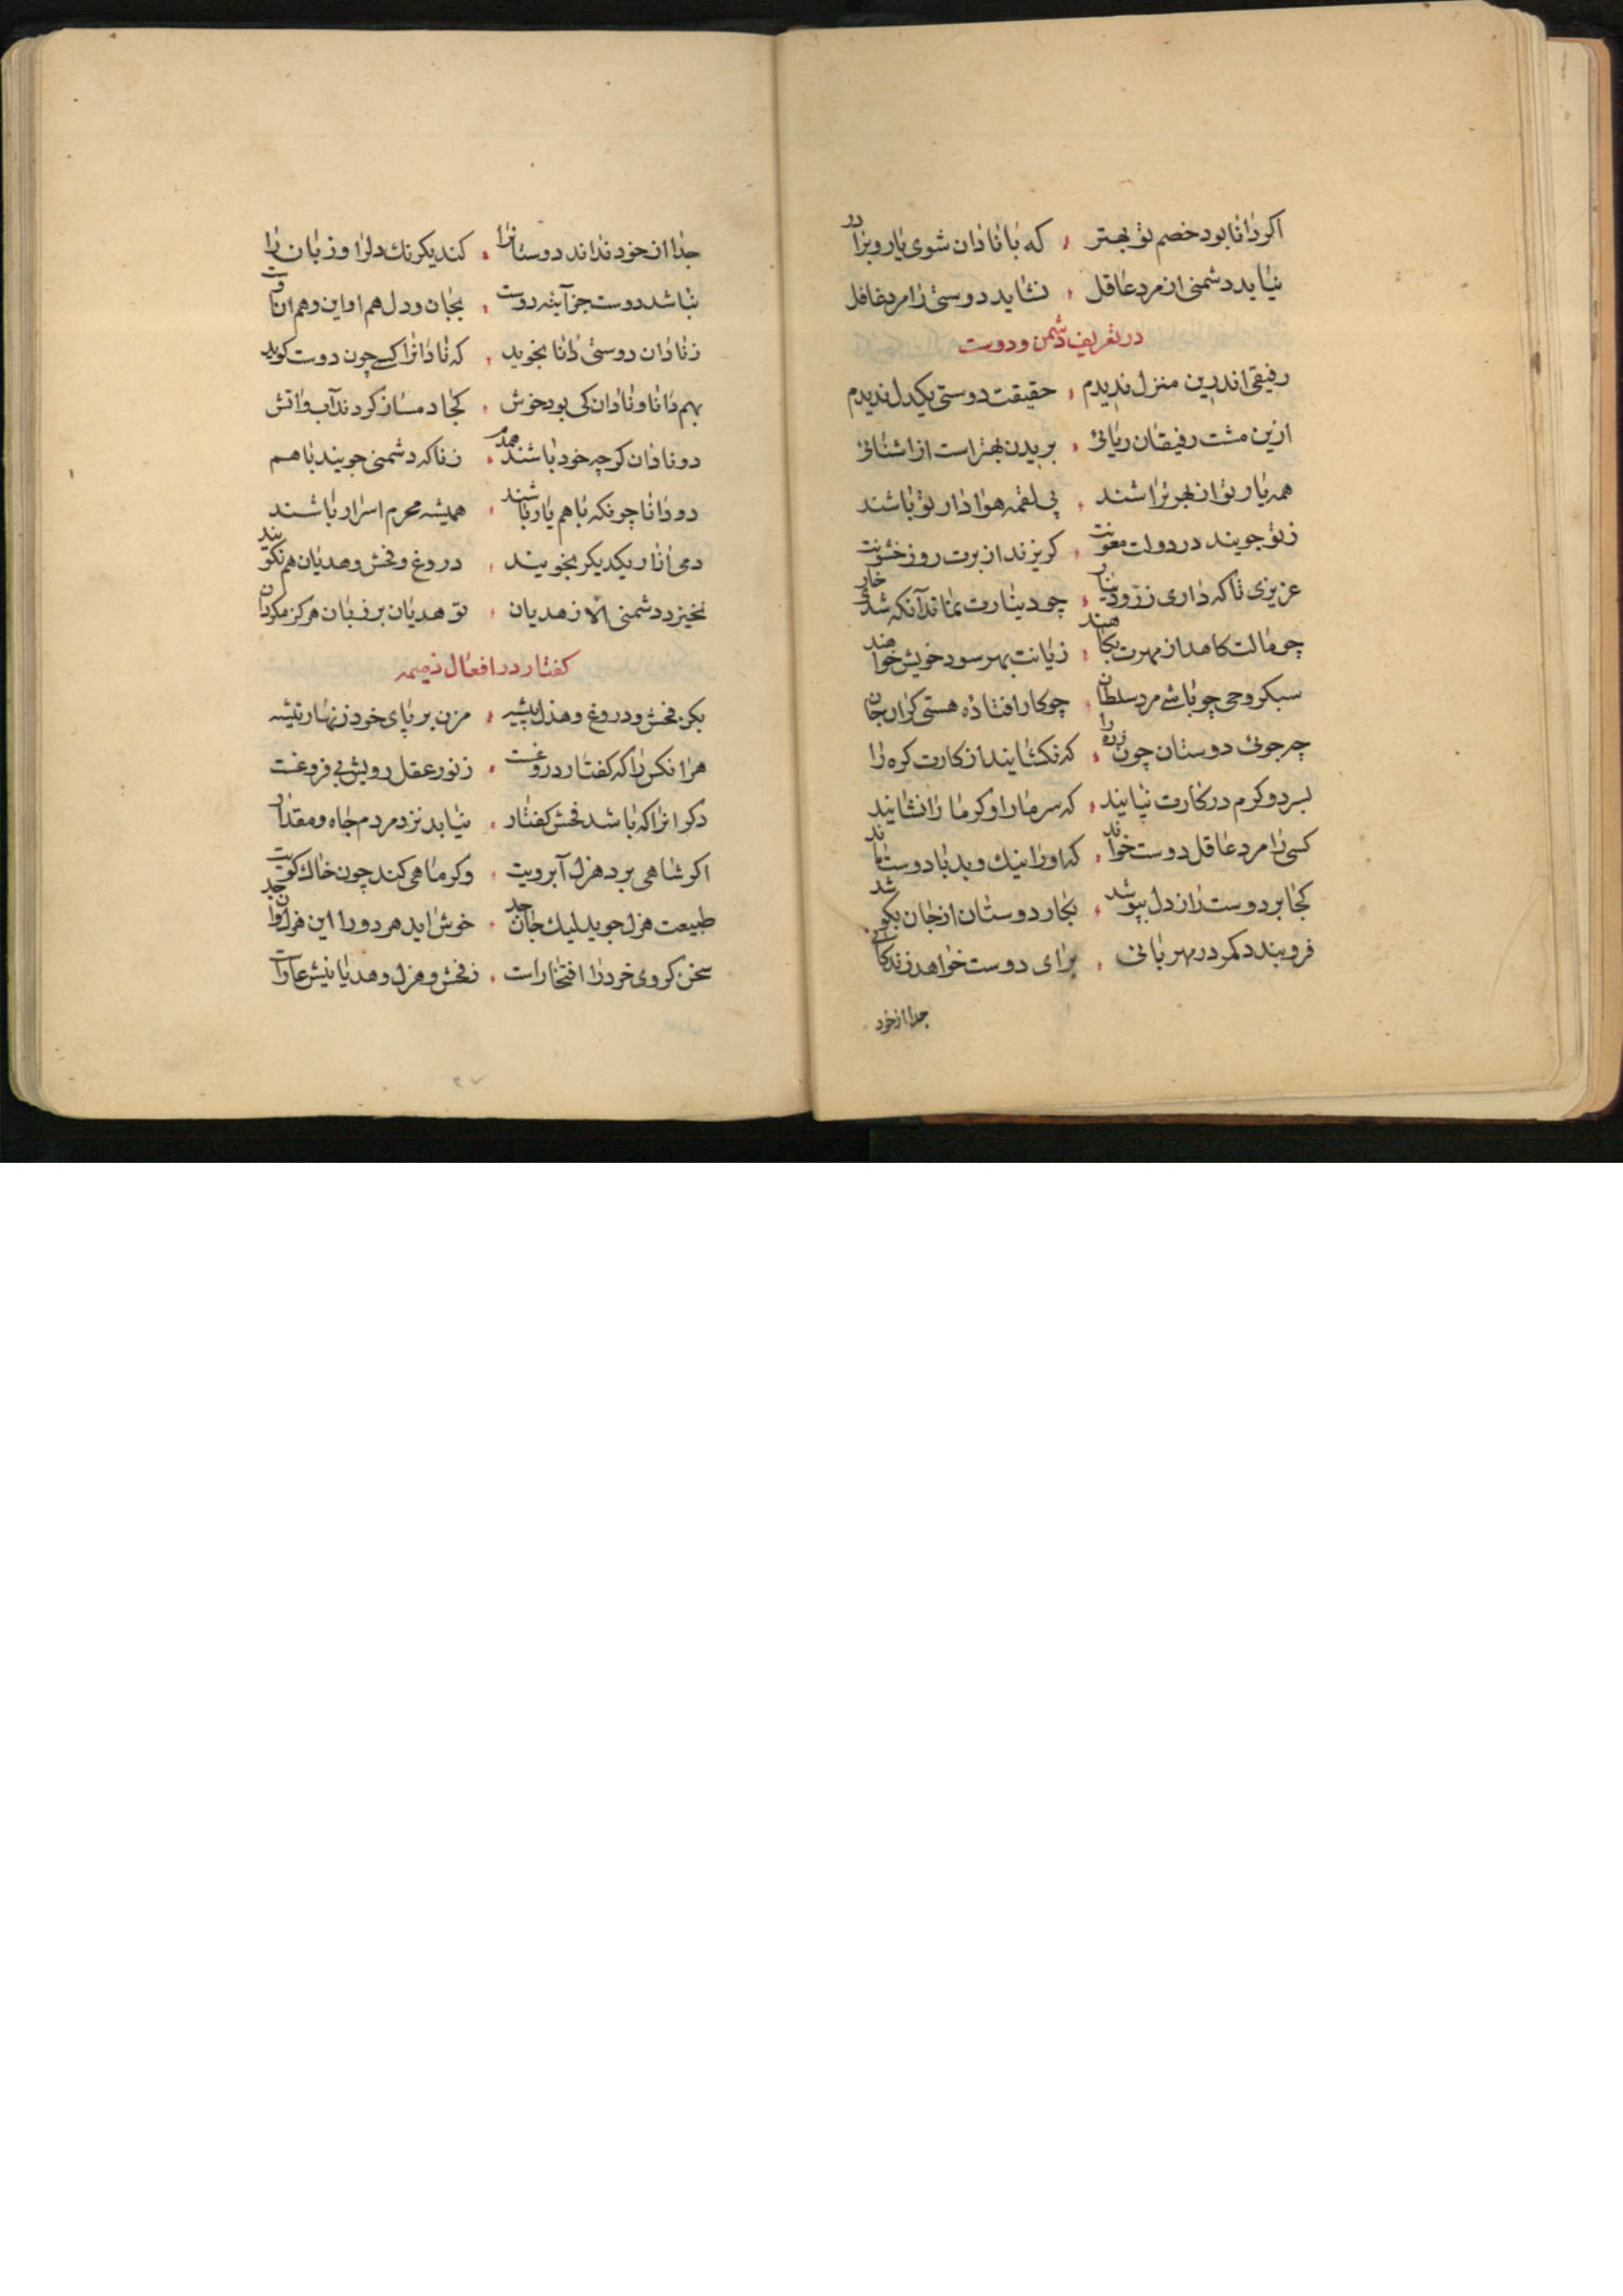 اکر دانا بود خصم تو بهتر ، که با نادان شوی یار و برادر
نیاید دشمنی از مرد عاقل ، نشاید دوستی را مرد غافل
در تعریف دشمن و دوست
رفیقی اندرین منزل ندیدم ، حقیقت دوستی یکدل ندیدم
ازین مشت رفیقان ریائی ، بریدن بهتر است از اشنائی
همه یار تو از بهر تراشند ، پی لقمه هوادار تو باشند
ز تو جویند در دولت معونت ، کریزند از برت روز خشونت
عزیزی تا که داری زر و دینار ، چو دینارت نماند آنکه شدی خار
چو مالت کاهد از مهرت بکاهند ، زیانت بهر سود خویش خواهند
سبکروحی چو باشی مرد سلطان ، چو کار افتاده هستی کران جان
چه جوئی دوستان چون زره را ، که نکشایند از کارت کره را
بسرد و کرم در کارت نپایند ، که سرما را و کرما را نشایند
کسی را مرد عاقل دوست خواند ، که او را نیک و بد با دوست ماند
کجا بر دوست راز دل بپوشد ، بکار دوستان از جان بکوشد
فروبندد کمر در مهربانی ، برای دوست خواهد زندکانی
جدا از خود
جدا از خود نداند دوستانرا ، کند یکرنک دلرا و زبان را
نباشد دوست جز آینه روت ، بجان و دل هم او این و هم اوت
ز نادان دوستی دانا بجوید ، که نادانرا کسی چون دوست کوید
بهم دانا و نادان کی بود خوش ، کجا دمساز کردند آب و اتش
دو نادان کرچه خود باشند همدم ، ز ناکه دشمنی جویند با هم
دو دانا چونکه با هم یار باشند ، همیشه محرم اسرار باشند
دمی ازار یکدیکر نجویند ، دروغ و فحش و هدیان هم نکویند
نخیزد دشمنی الا ز هدیان ، تو هدیان بر زبان هرکز مکردان
کفتار در افعال ذمیمه
مکن فحش و دروغ و هذل پیشه ، مزن بر پای خود زنهار تیشه
هرانکس را که کفتار دروغست ، ز نور عقل رویش بی فروغست
دکر انرا که باشد فحش کفتار ، نیابد نزد مردم جاه و مقدار
اکر شاهی برد هزل آبرویت ، وکر ماهی کند چون خاک کویت
طبیعت هزل جوید لیک جان جد ، خوش اید هر دو را این هزل وان جد
سخن کز وی خرد را افتخار است ، ز فحش و هزل و هدیانیش عارست